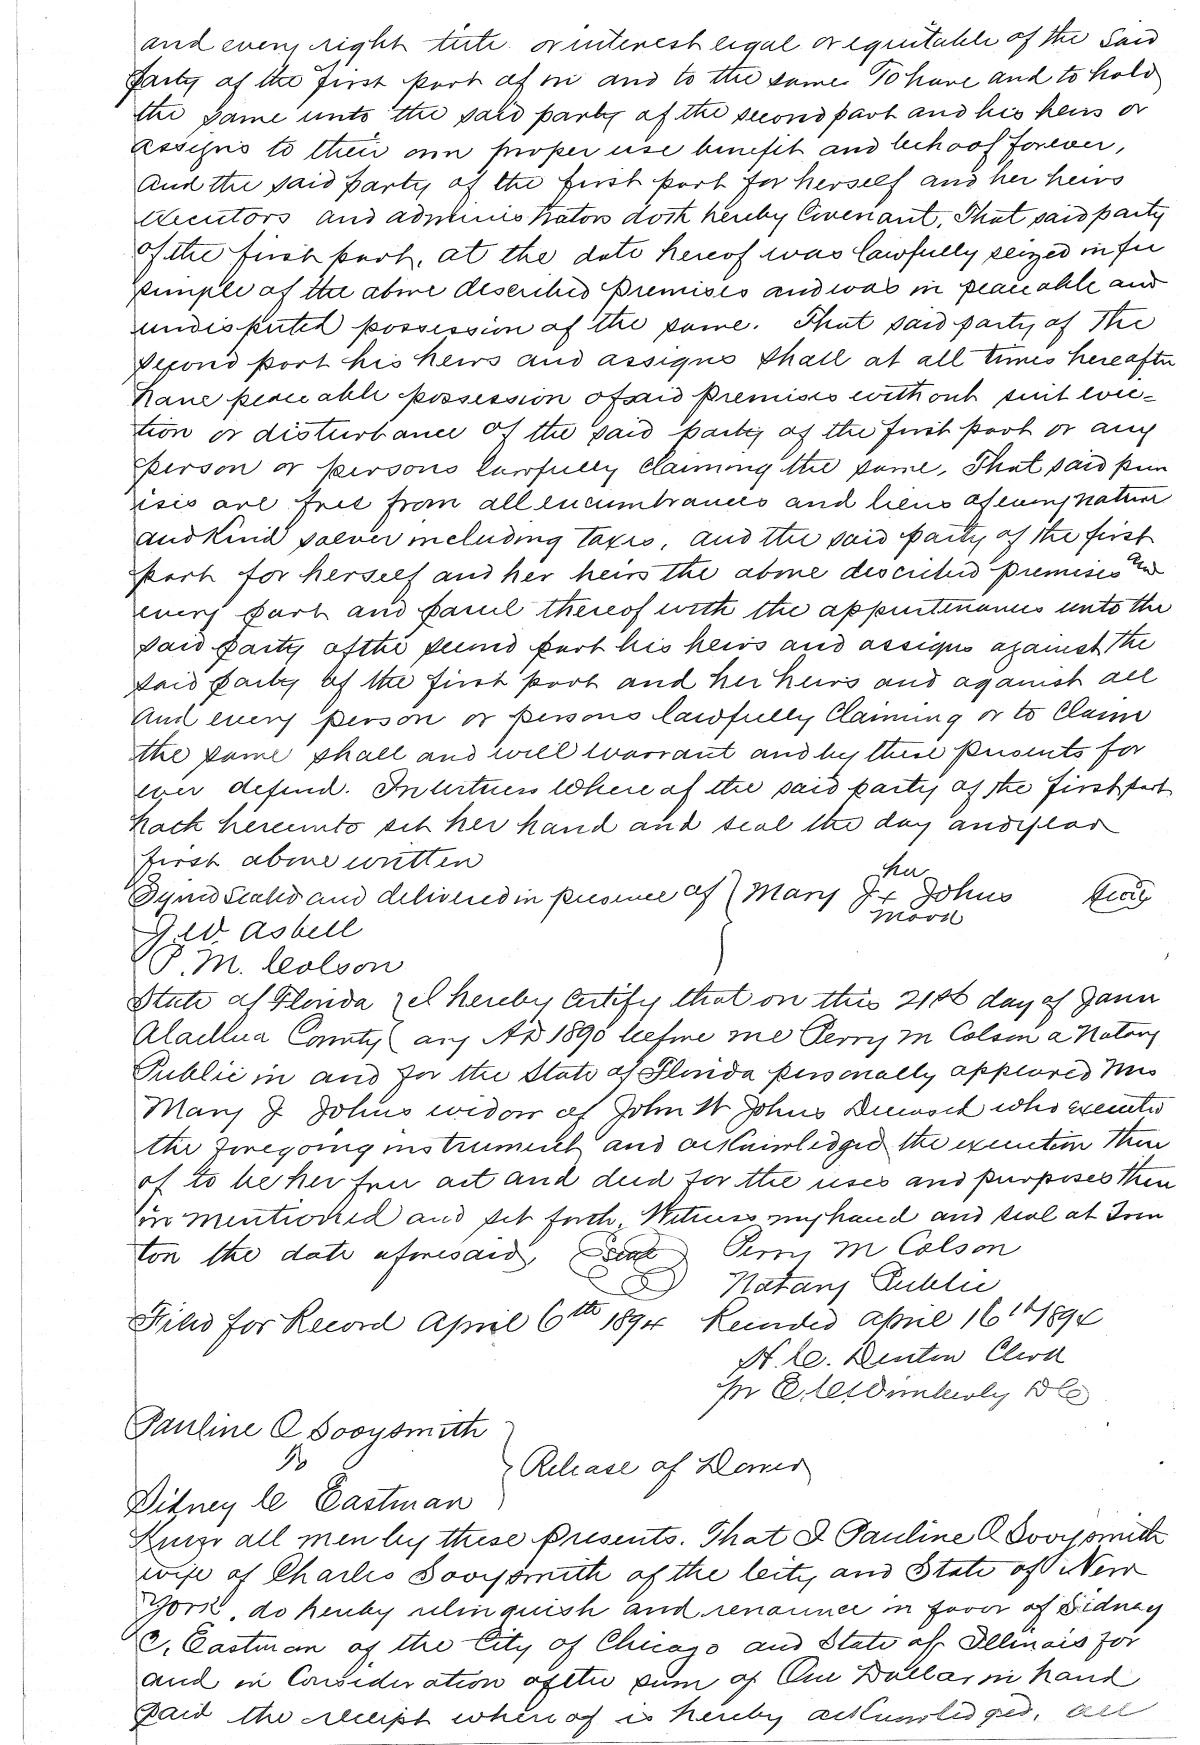 and every right title or interest legal or equitable of the Said
party of the first part of in and to the same To have and to hold
the same unto the said party of the second part and his heirs or
assigns to their own proper use benefit and behoof forever,
And the said party of the first part for herself and her heirs
executors and administrators doth hereby Covenant, That said party
of the first part, at the date hereof was lawfully seized in fee
simple of the above described premises and was in peaceable and
undisputed possession of the same. That said party of the
second part his heirs and assigns shall at all times hereafter
have peaceable possession of said premises without suit evic=
tion or disturbance of the said party of the first part or any
person or persons lawfully claiming the same, That said prem
ises are free from all encumbrances and liens of every nature
and Kind soever including taxes, and the said party of the first
part for herself and her heirs the above described premises and
every part and parcel thereof with the appurtenances unto the
said party of the second part his heirs and assigns against the
said party of the first part and her heirs and against all
And every person or persons lawfully Claiming or to Claim
the same shall and will warrant and by these presents for
ever defend. In witness Where of the said party of the first part
hath hereunto set her hand and seal the day and year
first above written
Signed Sealed and delivered in presence of } Mary J her x mark Johns Seal
J. W. Asbell
P. M. Colson
State of Florida } I hereby Certify that on this 21st day of Janu
Alachua County } ary AD 1890 before me Perry M Colson a Notary
Public in and for the State of Florida personally appeared Mrs
Mary J Johns widow of John W Johns Deceased who executed
the foregoing instrument and acknowledged the execution there
of to be her free act and deed for the uses and purposes there
in mentioned and set forth, Witness my hand and seal at Tren
ton the date aforesaid, Seal Perry M Colson
Notary Public
Filed for Record April 6th 1894 Recorded April 16th 1894
H. C. Denton Clerk
pr E. C. Wimberly D C
Pauline O Sooysmith
To } Release of Dower
Sidney C Eastman
Know all men by these Presents. That I Pauline O Sooysmith
wife of Charles Sooysmith of the City and State of New
York, do hereby relinquish and renounce in favor of Sidney
C. Eastman of the City of Chicago and State of Illinois for
and in Consideration of the sum of One Dollar in hand
paid the receipt where of is hereby acknowledged, all